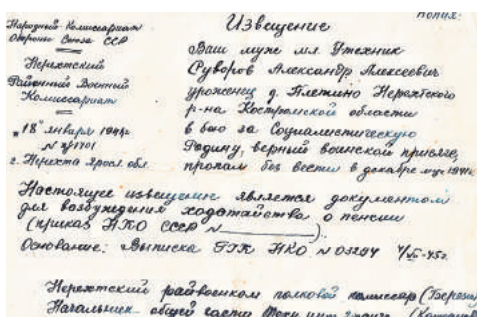 Копия:
Народный Комиссариат
Обороны Союза ССР
Нерехтский
Районный Военный
Комиссариат
"18" января 194 г.
г. Нерехта Яросл. обл.
Извещение
Ваш муж мл. техник
Суворов Александр Алексеевич
уроженец д. Нерехтского
р-на Костромской области
в бою за Социалистическую
Родину, верный воинской присяге,
пропал без вести в декабре м-це 1941г.
Настоящее извещение является документом
для возбуждения ходатайства о пенсии
(приказ НКО СССР N ).
Основание: Выписка ГУК НКО N 03294
Нерехтский райвоенком полковой комиссар
Начальник общей части